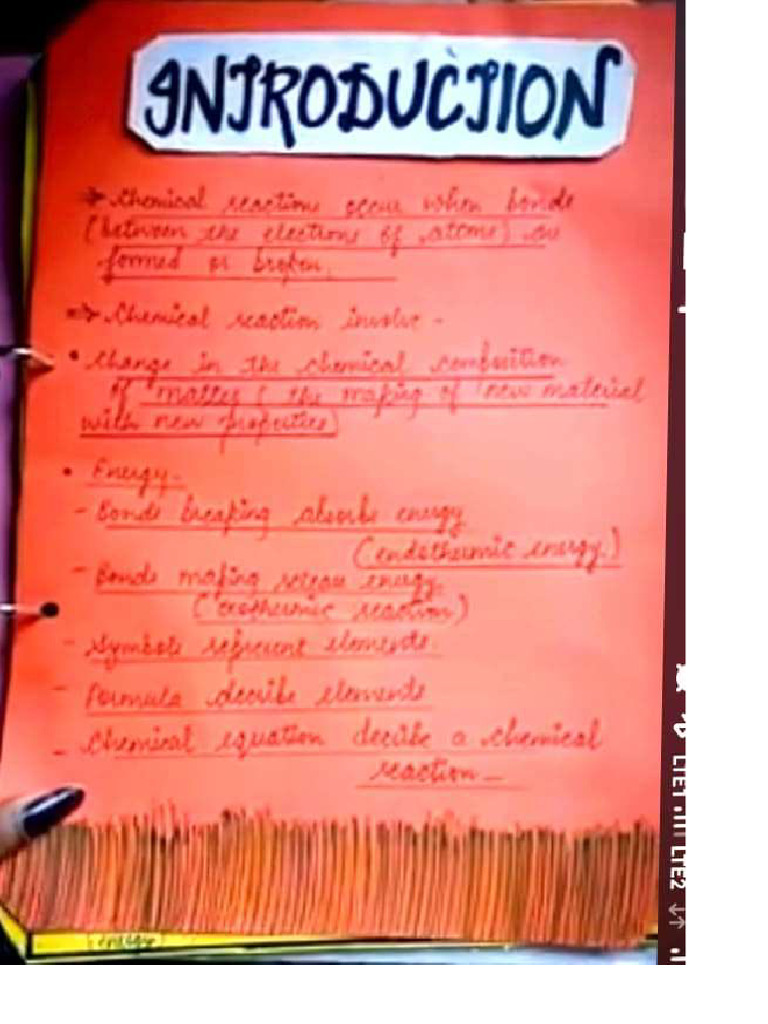 INTRODUCTION
⇒ Chemical reactions occur when bonds
(between the electrons of atoms) are
formed or broken.
⇒ Chemical reaction involve -
• Change in the chemical combsition
of matter ( the making of new material
with new properties)
• Energy -
- Bonds breaking absorbe energy
(endothermic energy.)
- Bonds making release energy.
(exothermic reaction)
- Symbols represent elements.
- Formula decribe elements
- Chemical equation decribe a chemical
reaction -
LTE1 LTE2